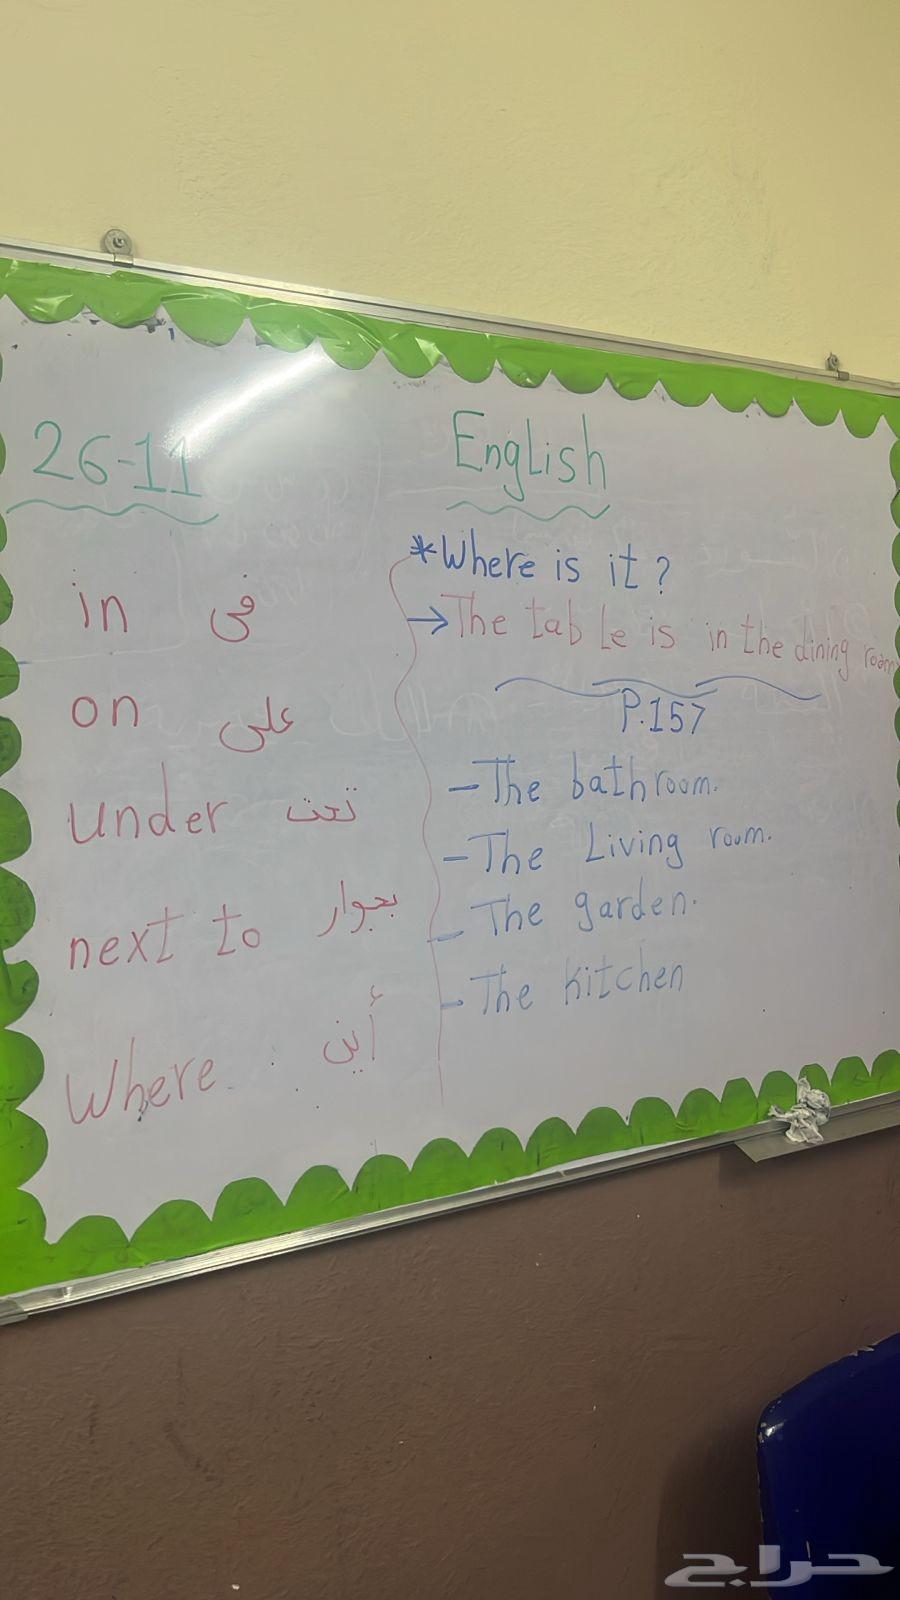 26-11
English
in في
on على
under تحت
next to بجوار
Where أين
*Where is it?
→The table is in the dining room
P.157
-The bathroom.
-The Living room.
-The garden.
-The kitchen
حراج